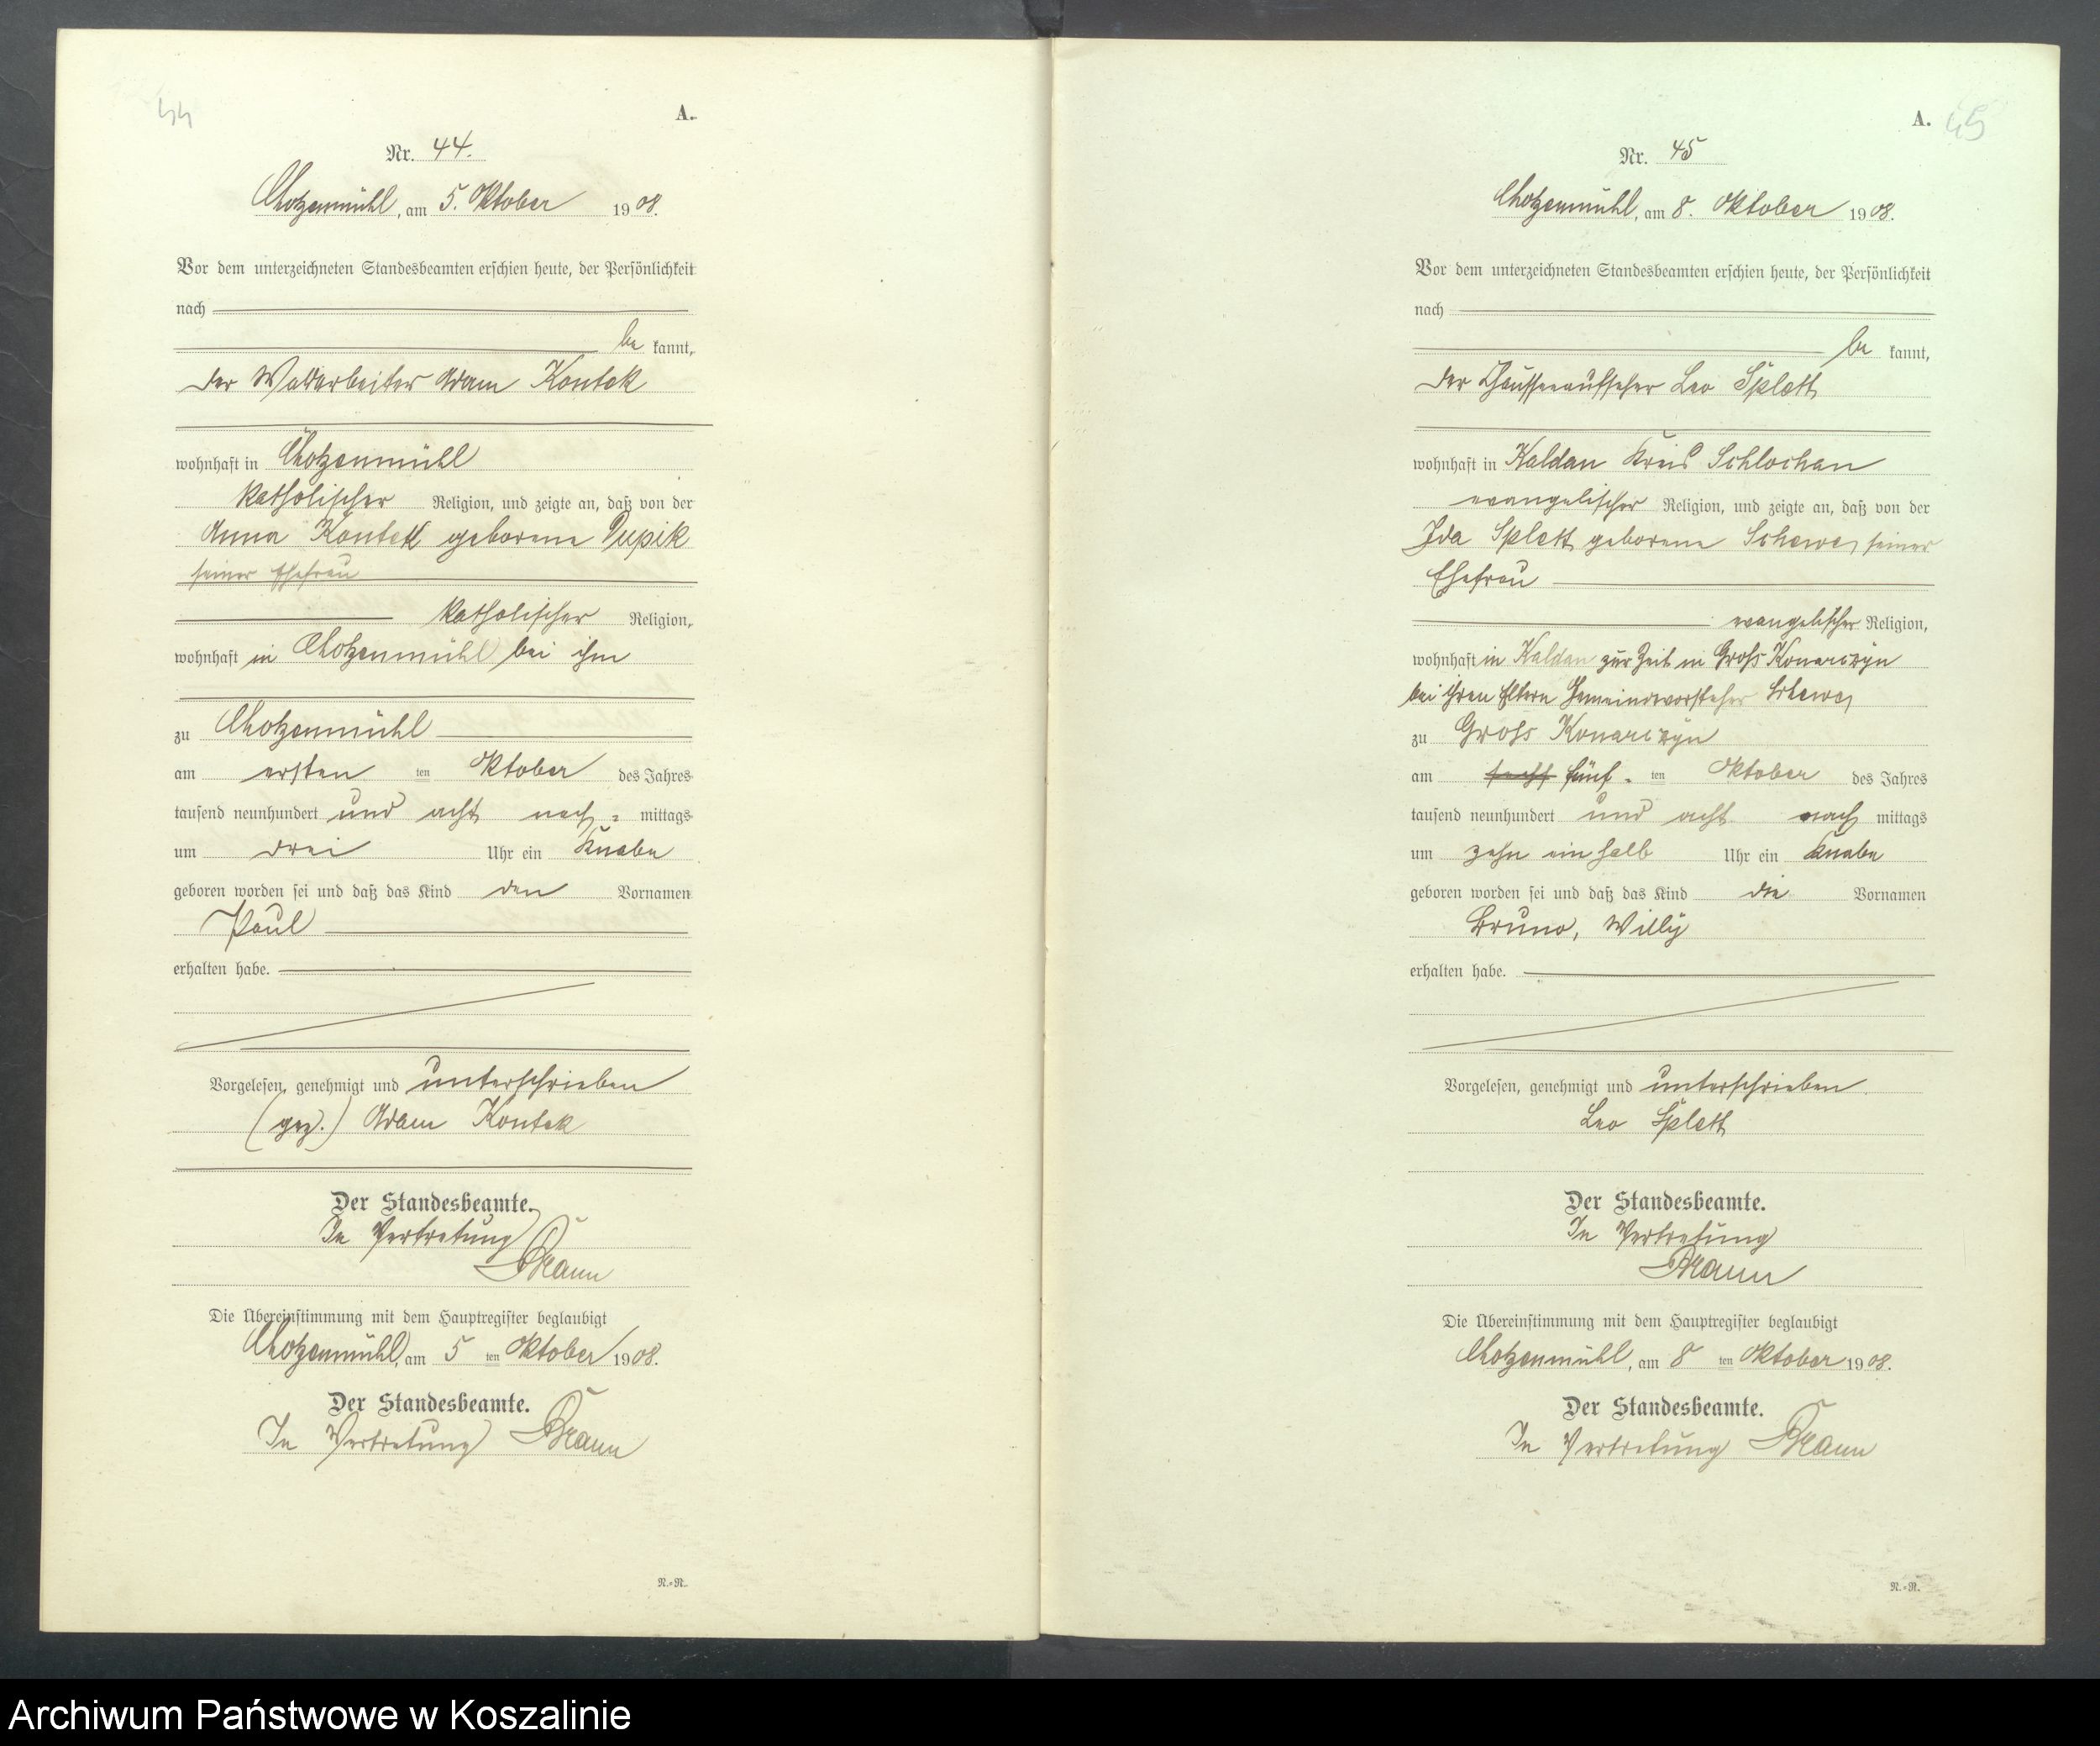 44
A.
Nr. 44.
Chotzenmühl, am 5. Oktober 1908.
Vor dem unterzeichneten Standesbeamten erschien heute, der Persönlichkeit
nach
be kannt,
der Waldarbeiter Adam Kontek
wohnhaft in Chotzenmühl
katholischer Religion, und zeigte an, daß von der
Anna Kontek geborene Pupik
seiner Ehefrau
katholischer Religion,
wohnhaft in Chotzenmühl bei ihm
zu Chotzenmühl
am ersten ten Oktober des Jahres
tausend neunhundert und acht nach= mittags
um drei Uhr ein Knabe
geboren worden sei und daß das Kind den Vornamen
Paul
erhalten habe.
Vorgelesen, genehmigt und unterschrieben
(gez.) Adam Kontek
Der Standesbeamte.
In Vertretung
Die Übereinstimmung mit dem Hauptregister beglaubigt
Chotzenmühl, am 5 ten Oktober 1908.
Der Standesbeamte.
In Vertretung
N.=N.
A. 45
Nr. 45
Chotzenmühl, am 8. Oktober 1908.
Vor dem unterzeichneten Standesbeamten erschien heute, der Persönlichkeit
nach
be kannt,
der Chausseeaufseher Leo Splett
wohnhaft in Kaldau Kreis Schlochau
evangelischer Religion, und zeigte an, daß von der
Ida Splett geborene Schewe, seiner
Ehefrau
evangelischer Religion,
wohnhaft in Kaldau zur Zeit in Gross Konarczyn
bei ihren Eltern Gemeindevorsteher Schewe,
zu Gross Konarczyn
am fünf= ten Oktober des Jahres
tausend neunhundert und acht nach mittags
um zehn ein halb Uhr ein Knabe
geboren worden sei und daß das Kind die Vornamen
Bruno, Willy
erhalten habe.
Vorgelesen, genehmigt und unterschrieben
Leo Splett
Der Standesbeamte.
In Vertretung
Die Übereinstimmung mit dem Hauptregister beglaubigt
Chotzenmühl, am 8 ten Oktober 1908.
Der Standesbeamte.
In Vertretung
N.=N.
Archiwum Państwowe w Koszalinie